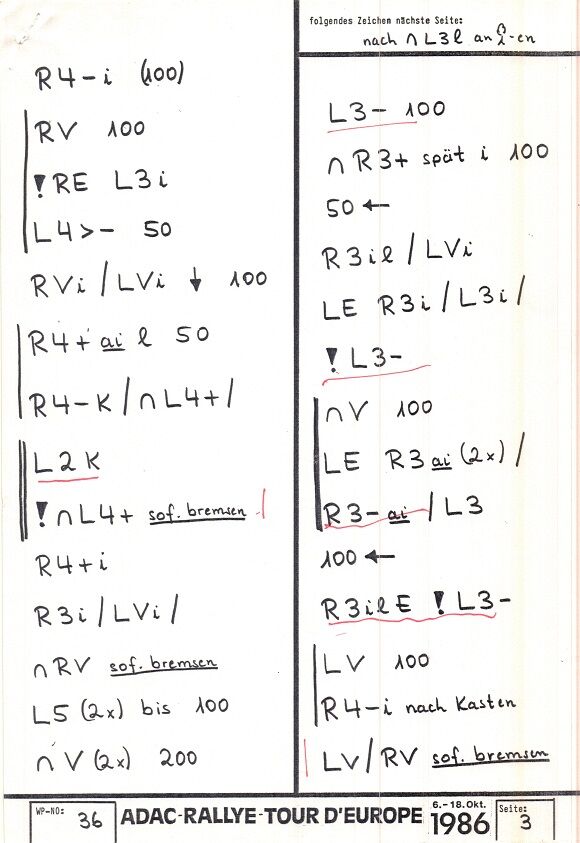 R4-i (100)
RV 100
!RE L3i
L4>- 50
RVi/LVi ↓ 100
R4+ ai l 50
R4-K/∩L4+/
L2K
!∩L4+ sof. bremsen
R4+i
R3i/LVi/
∩RV sof. bremsen
L5 (2x) bis 100
∩V (2x) 200
folgendes Zeichen nächste Seite:
nach ∩L3l an -en
L3- 100
∩R3+ spät i 100
50 ←
R3il/LVi
LE R3i/L3i/
!L3-
∩V 100
LE R3ai(2x)/
R3-ai/L3
100 ←
R3ilE !L3-
LV 100
R4-i nach Kasten
LV/RV sof. bremsen
WP-NO: 36
ADAC-RALLYE-TOUR D'EUROPE
6.-18.Okt.
1986
Seite: 3